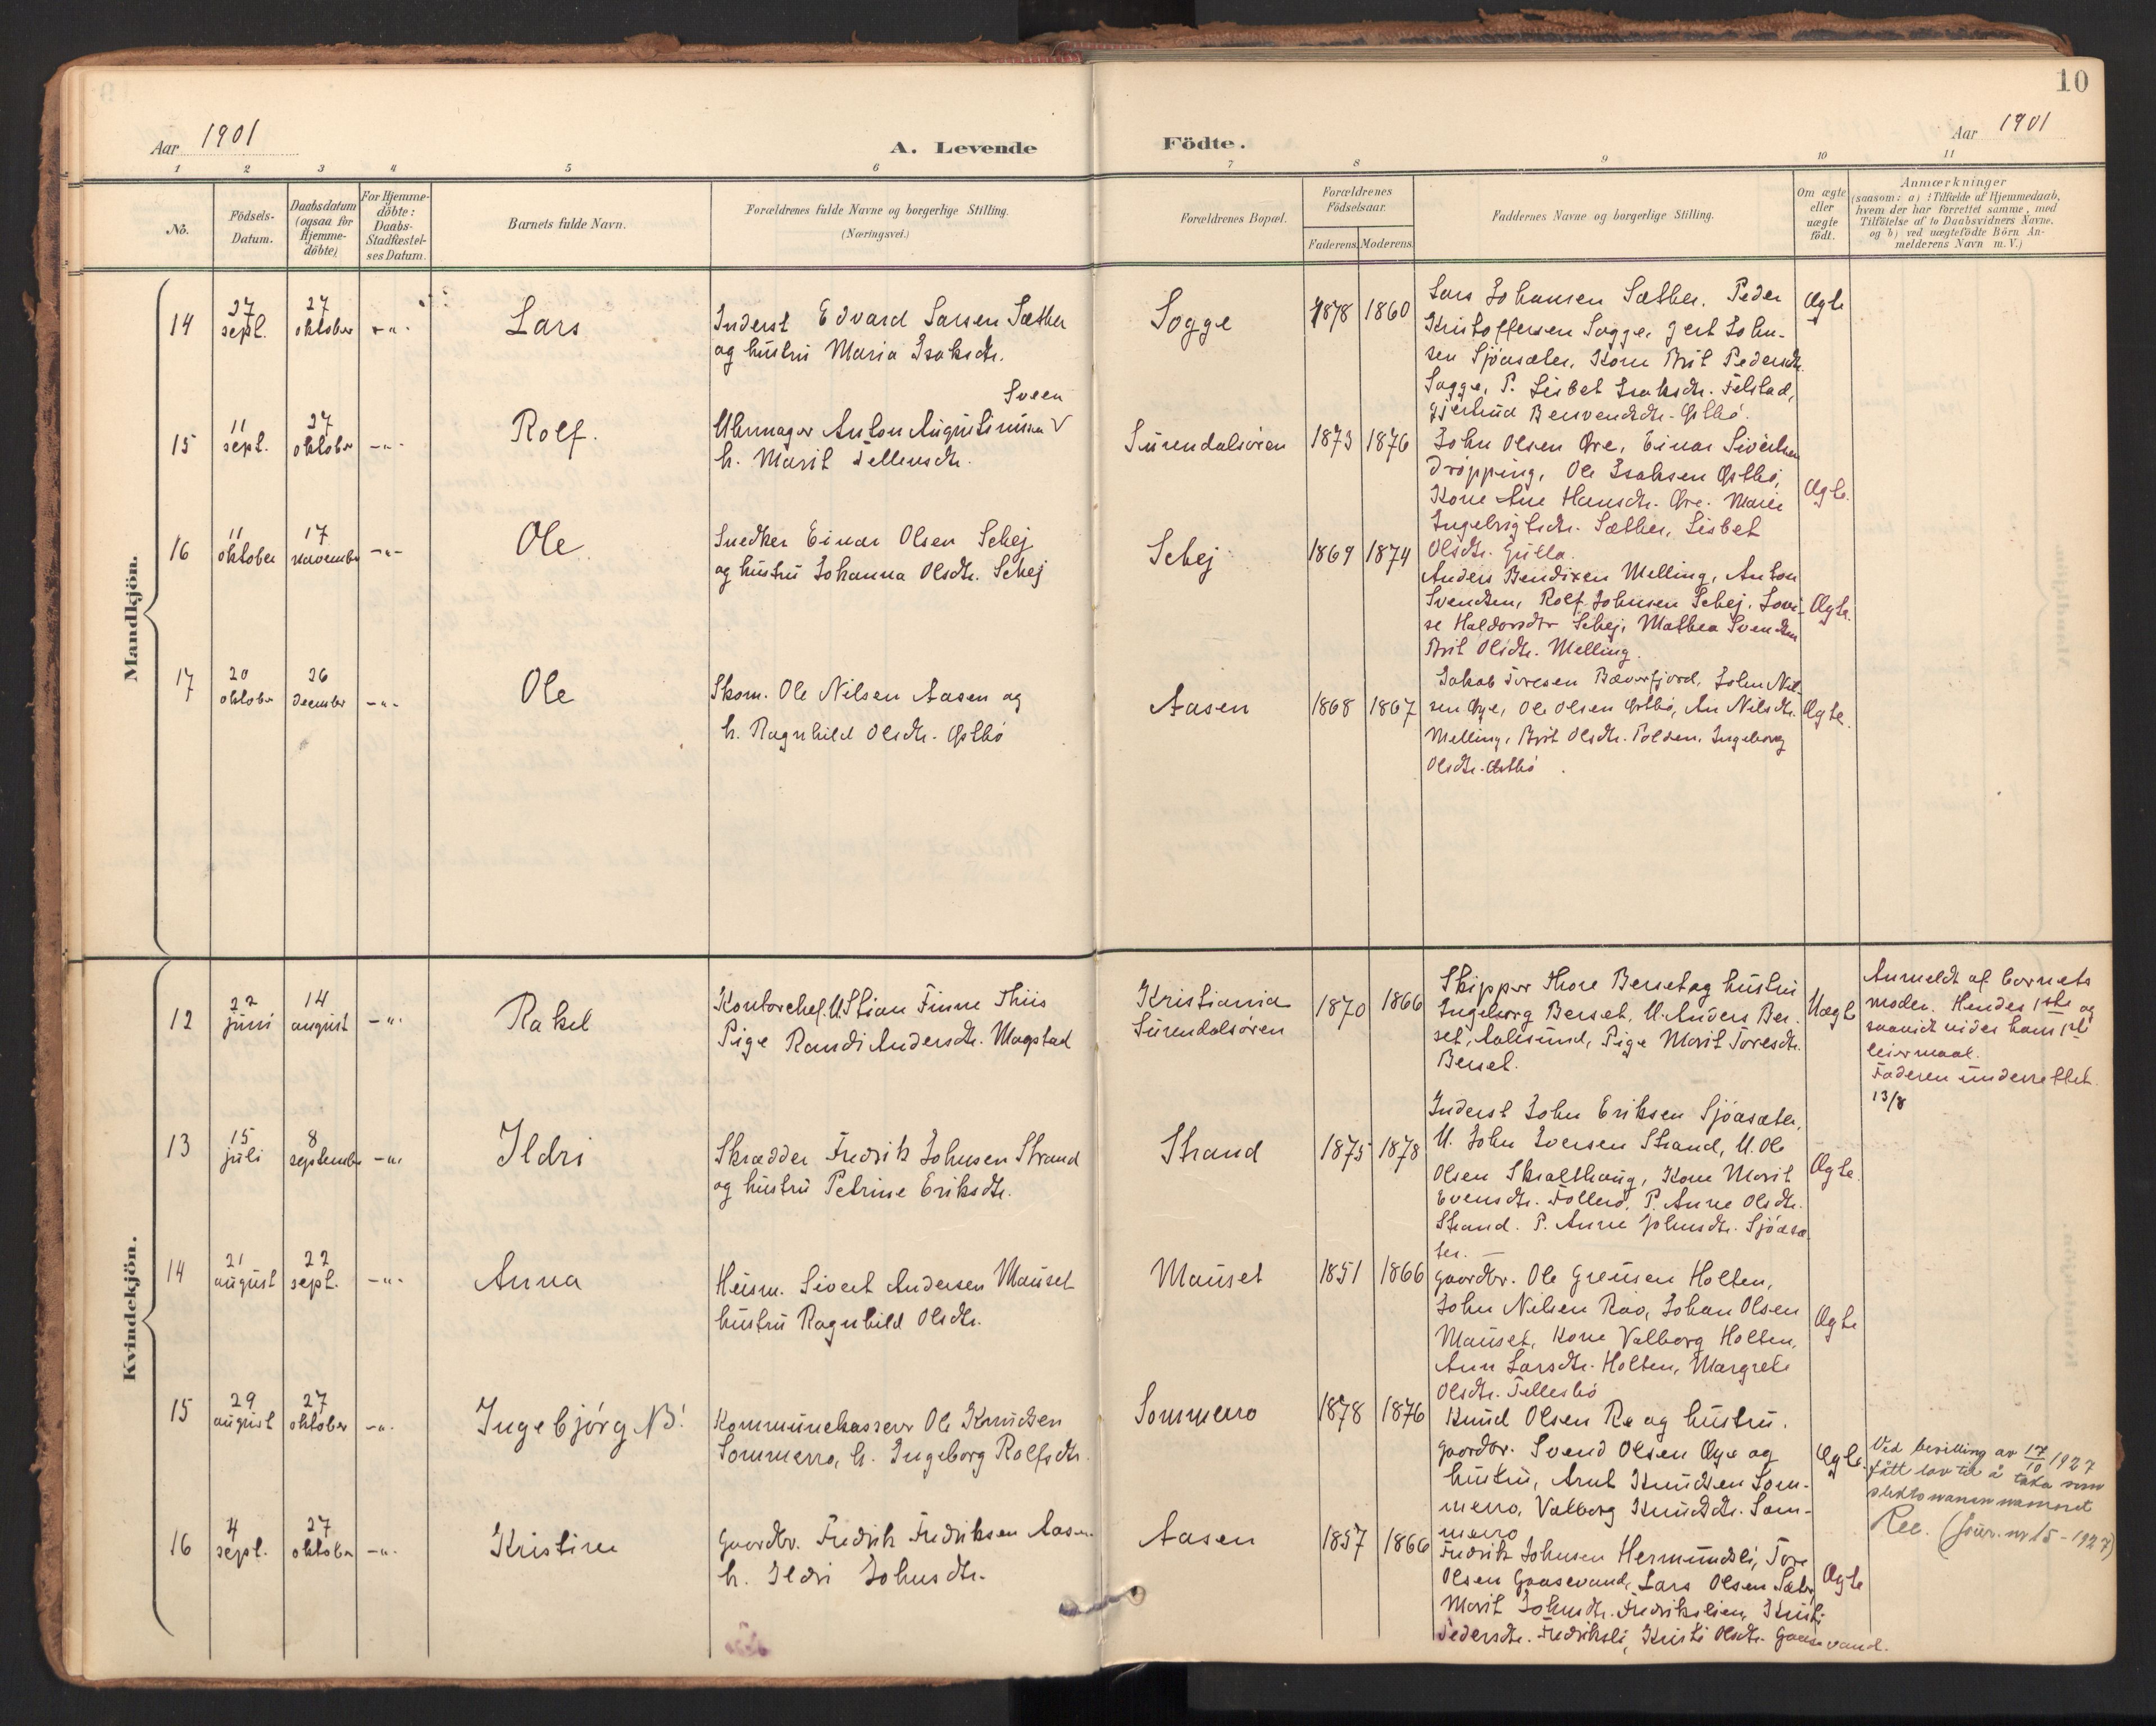 10
Aar 1901
A. Levende
Födte.
Aar 1901
1 2 3 4 5 6 7 8 9 10 11
No.
Födsels-
Datum.
Daabsdatum
(ogsaa for
Hjemme-
döbte)
For Hjemme-
döbte:
Daabs-
Stadfæstel-
ses Datum.
Barnets fulde Navn.
Forældrenes fulde Navne og borgerlige Stilling.
(Næringsvei.)
Forældrenes Bopæl.
Forældrenes
Födselsaar.
Faderens. Moderens.
Faddernes Navne og borgerlige Stilling.
Om ægte
eller
uægte
födt.
Anmærkninger
(saasom: a) i Tilfælde af Hjemmedaab,
hvem der har forrettet samme, med
Tilföielse af to Daabsvidners Navne.
og b) ved uægtefödte Börn An-
melderens Navn m. V.)
Mandkjön.
14
27
sept.
27
oktober
-"-
Lars
Inderst Edvard Larsen Sæther
og hustru Maria Isaksdtr.
Sogge
1878 1860
Lars Johansen Sæther. Peder
Kristoffersen Sogge, Gert John-
sen Sjöasæter, Kone Brit Pedersdtr.
Sogge, P. Lisbet Isaksdtr. Telstad,
Gjertrud Bersvendsdtr. Östbö.
Ægte
15
11
sept.
27
oktober
-"-
Rolf.
Sveen
Uhrmager Anton Augustinusen V
h. Marit Tellevsdtr.
Surendalsören
1873 1876
John Olsen Øre, Einar Sivertsen
Dröpping, Ole Isaksen Østbö,
Kone Ane Hansdtr. Øre. Marie
Ingebrigtsdtr. Sæther, Lisbet
Olsdtr. Gulla.
Ægte.
16
11
oktober
17
november
-"-
Ole
Snedker Einar Olsen Schej
og hustru Johanna Olsdtr. Schej
Schej
1869 1874
Anders Bendixen Melling, Anton
Svendsen, Rolf Johnsen Schej, Lovi-
se Haldorsdtr Schej, Mathea Svendsen
Brit Olsdtr. Melling.
Ægte.
17
20
oktober
26
december
-"-
Ole
Skom. Ole Nilsen Aasen og
h. Ragnhild Olsdtr. Østbö
Aasen
1868 1867
Jakob Toresen Bæverfjord, John Nil-
sen Øye, Ole Olsen Østbö, An Nilsdtr.
Melling, Brit Olsdtr. Polden, Ingeborg
Olsdtr. Østbö.
Ægte.
Kvindekjön.
12
22
juni
14
august
-"-
Rakel
Kontorchef. U. Stian Finne Thiis
Pige Randi Andersdtr. Mogstad
Kristiania
Surendalsören
1870 1866
Skipper Thore Berset og hustru
Ingeborg Berset, U. Anders Ber-
set, Aalesund, Pige Marit Toresdtr.
Berset.
Uægte
Anmeldt af barnets
moder. Hendes 1ste og
saavidt vides hans 1ste
leiermaal.
Faderen underrettet.
13/8
13
15
juli
8
september
-"-
Ildri
Skrædder Fredrik Johnsen Strand
og hustru Petrine Eriksdtr.
Strand
1875 1878
Inderst John Eriksen Sjöasæter,
U. John Iversen Strand, U. Ole
Olsen Skralthaug, Kone Marit
Evensdtr. Follerö, P. Anne Olsdtr.
Strand. P. Anne Johnsdtr. Sjöasæ-
ter. —
Ægte.
14
21
august
22
sept.
-"-
Anna
Husm. Sivert Andersen Mauset
hustru Ragnhild Olsdtr.
Mauset
1851 1866
Gaardbr. Ole Greusen Holten,
John Nilsen Rao, Johan Olsen
Mauset, Kone Valborg Holten,
Ann Larsdtr. Holten, Margrete
Olsdtr. Tellesbö
Ægte
15
29
august
27
oktober
-"-
Ingebjörg NB!
Kommunekasserer Ole Knudsen
Sommerro, h. Ingeborg Rolfsdtr.
Sommerro
1878 1876
Knud Olsen Rø og hustru.
Gaardbr. Svend Olsen Øye og
hustru, Arnt Knudsen Som-
merro, Valborg Knudsdtr. Som-
merro
Ægte.
Ved bevilling av 17/10 1927
fått lov til å taka som
slektsnavn navnet
Ree. (Jour. nr 15 - 1927)
16
4
sept.
27
oktober
-"-
Kristine
Gaardbr. Fredrik Fredriksen Aasen
h. Ildri Johnsdtr.
Aasen
1857 1866
Fredrik Johnsen Hermundsli, Tore
Olsen Gaasevand, Lars Olsen Sæter
Marit Johnsdtr. Fredrikslien, Kristi
Pedersdtr. Fredriksli, Kristi Olsdtr. Gaasevand.
Ægte